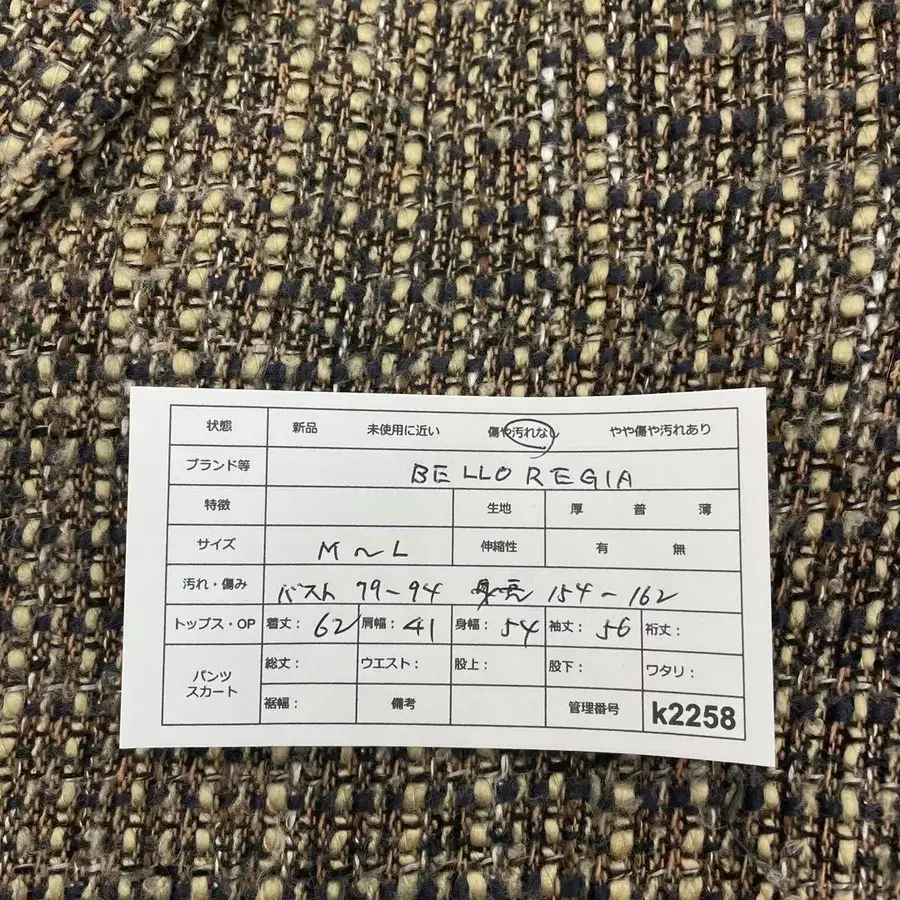 状態 新品 未使用に近い 傷や汚れなし やや傷や汚れあり
ブランド等 BELLO REGIA
特徴 生地 厚 普 薄
サイズ M〜L 伸縮性 有 無
汚れ・傷み バスト 79-94 身長 154-162
トップス・OP 着丈: 62 肩幅: 41 身幅: 54 袖丈: 56 裄丈:
パンツ スカート 総丈: ウエスト: 股上: 股下: ワタリ:
裾幅: 備考 管理番号 k2258